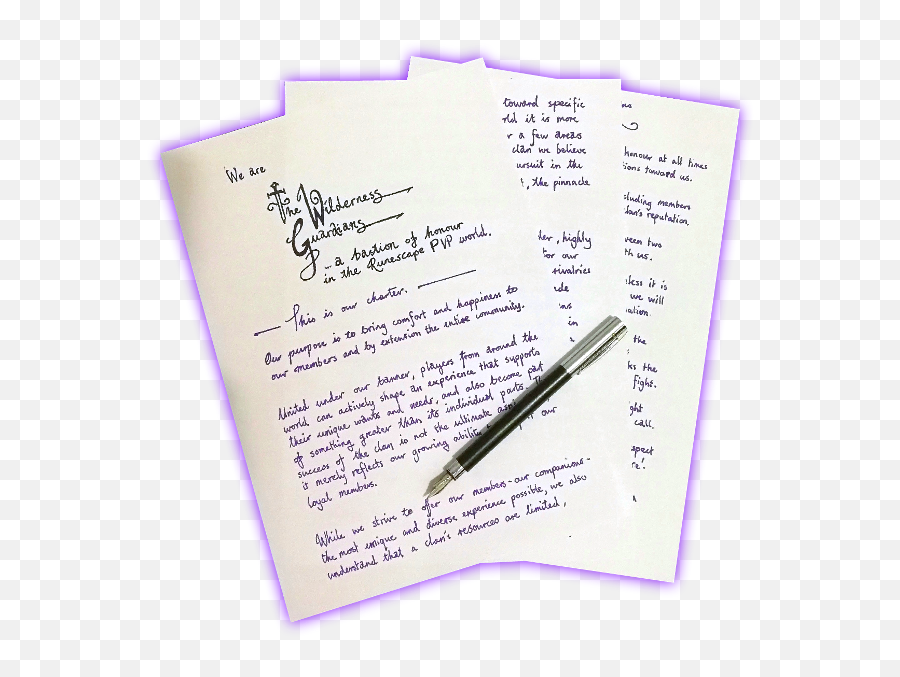 We are
The Wilderness
Guardians
... a bastion of honour
in the Runescape PVP world.
This is our charter.
Our purpose is to bring comfort and happiness to
our members and by extension the entire community.
United under our banner, players from around the
world can actively shape an experience that supports
their unique wants and needs, and also become part
of something greater than its individual parts. The
success of the clan is not the ultimate
it merely reflects our growing ability our
loyal members.
While we strive to offer our members - our companions -
the most unique and diverse experience possible, we also
understand that a clan's resources are limited,
toward specific
it is more
a few areas
clan we believe
in the
, the pinnacle
highly
for our
rivalries
in
honour at all times
toward us.
members
clan's reputation.
two
us.
it is
we will
the
the
fight.
call.